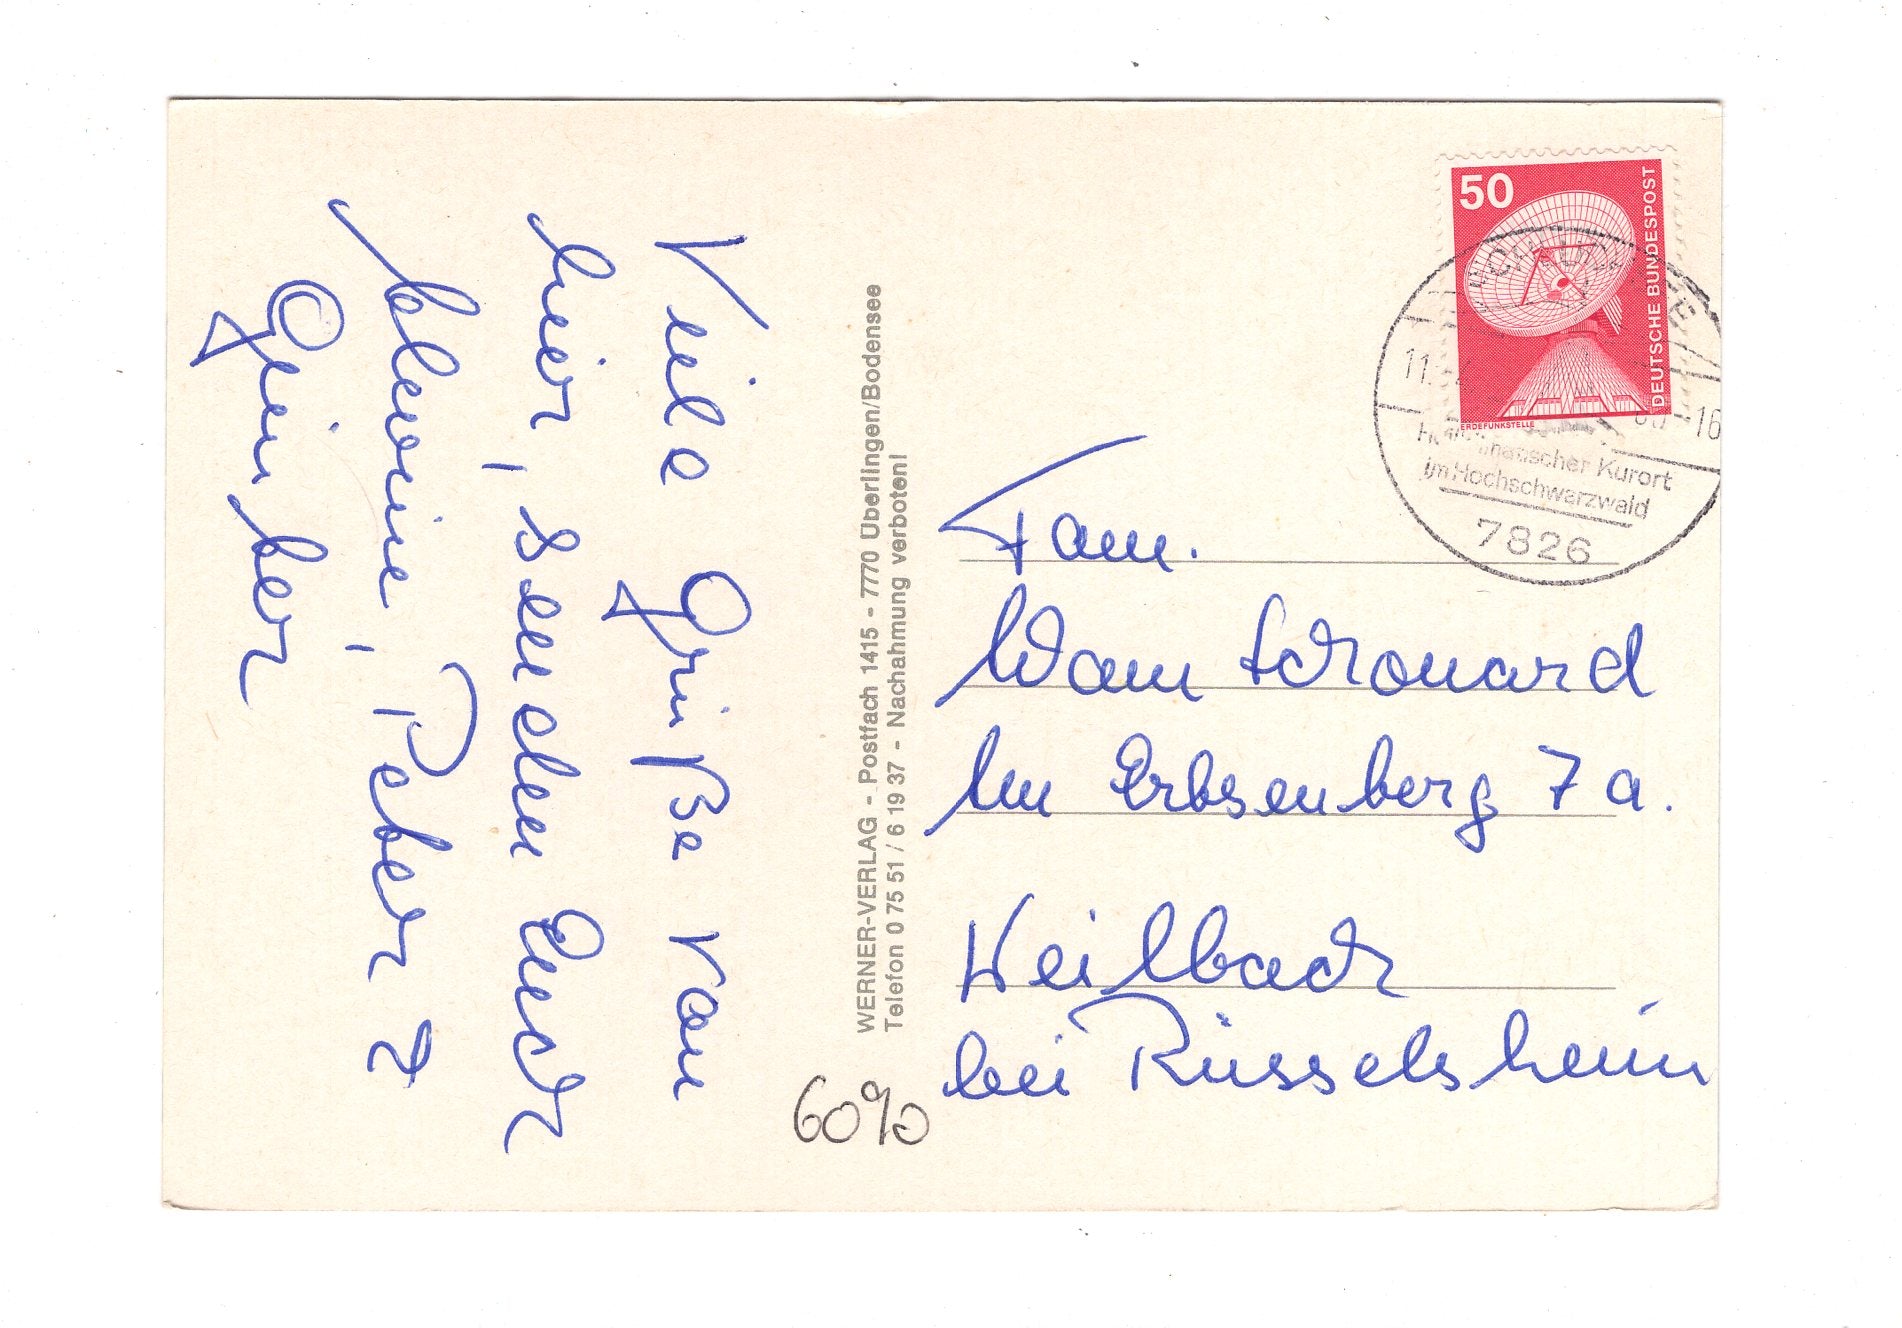 Viele Grüße von
hier, senden Euch
Peter &
Günter
WERNER-VERLAG - Postfach 1415 - 7770 Überlingen/Bodensee
Telefon 0 75 51 / 6 19 37 - Nachahmung verboten!
50
DEUTSCHE BUNDESPOST
ERDEFUNKSTELLE
11.
80-16
Kurort
im Hochschwarzwald
7826
Fam.
Im Erbsenberg 7a.
Weilbach
bei Rüsselsheim
60%